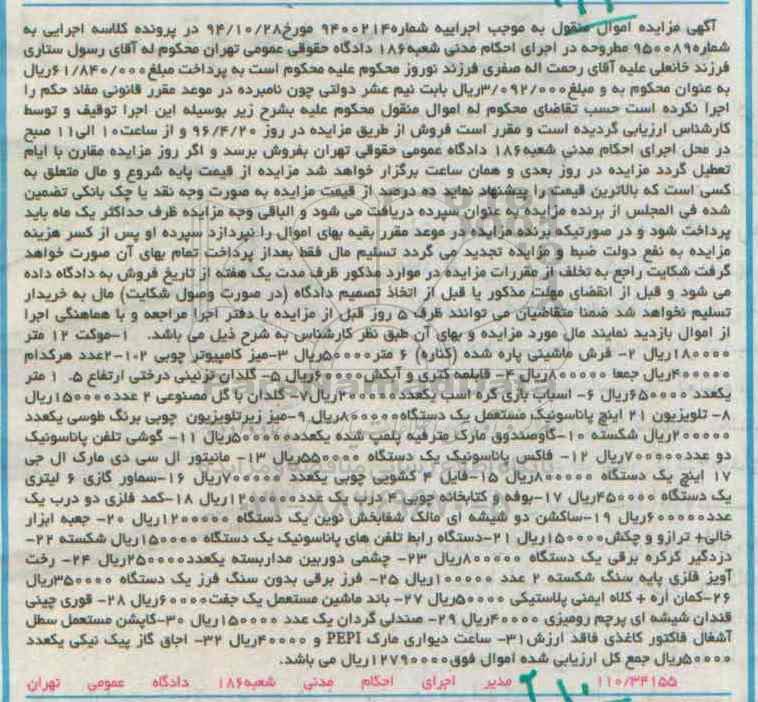 آگهی مزایده اموال منقول به موجب اجراییه شماره۹۴۰۰۲۱۴ مورخ۹۴/۱۰/۲۸ در پرونده کلاسه اجرایی به
شماره۹۵۰۰۸۹ مطروحه در اجرای احکام مدنی شعبه۱۸۶ دادگاه حقوقی عمومی تهران محکوم له آقای رسول ستاری
فرزند خانعلی علیه آقای رحمت اله صفری فرزند نوروز محکوم علیه محکوم است به پرداخت مبلغ۶۱/۸۴۰/۰۰۰ریال
به عنوان محکوم به و مبلغ۳/۰۹۲/۰۰۰ریال بابت نیم عشر دولتی چون نامبرده در موعد مقرر قانونی مفاد حکم را
اجرا نکرده است حسب تقاضای محکوم له اموال منقول محکوم علیه بشرح زیر بوسیله این اجرا توقیف و توسط
کارشناس ارزیابی گردیده است و مقرر است فروش از طریق مزایده در روز ۹۶/۴/۲۰ و از ساعت۱۰ الی۱۱ صبح
در محل اجرای احکام مدنی شعبه۱۸۶ دادگاه عمومی حقوقی تهران بفروش برسد و اگر روز مزایده مقارن با ایام
تعطیل گردد مزایده در روز بعدی و همان ساعت برگزار خواهد شد مزایده از قیمت پایه شروع و مال متعلق به
کسی است که بالاترین قیمت را پیشنهاد نماید ده درصد از قیمت مزایده به صورت وجه نقد یا چک بانکی تضمین
شده فی المجلس از برنده مزایده به عنوان سپرده دریافت می شود و الباقی وجه مزایده ظرف حداکثر یک ماه باید
پرداخت شود و در صورتیکه برنده مزایده در موعد مقرر بقیه بهای اموال را نپردازد سپرده او پس از کسر هزینه
مزایده به نفع دولت ضبط و مزایده تجدید می گردد تسلیم مال فقط بعداز پرداخت تمام بهای آن صورت خواهد
گرفت شکایت راجع به تخلف از مقررات مزایده در موارد مذکور ظرف مدت یک هفته از تاریخ فروش به دادگاه داده
می شود و قبل از انقضای مهلت مذکور یا قبل از اتخاذ تصمیم دادگاه (در صورت وصول شکایت) مال به خریدار
تسلیم نخواهد شد ضمنا متقاضیان می توانند ظرف ۵ روز قبل از مزایده با دفتر اجرا مراجعه و با هماهنگی اجرا
از اموال بازدید نمایند مال مورد مزایده و بهای آن طبق نظر کارشناس به شرح ذیل می باشد. ۱-موکت ۱۲ متر
۱۸۰۰۰۰ریال ۲- فرش ماشینی پاره شده (کناره) ۶ متر۵۰۰۰۰۰ریال ۳-میز کامپیوتر چوبی ۱۰۲-۲عدد هرکدام
۴۰۰۰۰۰ریال جمعا ۸۰۰۰۰۰ریال ۴- قابلمه کتری و آبکش۶۰۰۰۰۰ریال ۵- گلدان تزئینی درختی ارتفاع ۵. ۱ متر
یکعدد ۶۵۰۰۰۰ریال ۶- اسباب بازی کره اسب یکعدد۲۰۰۰۰۰ریال۷- گلدان با گل مصنوعی ۲ عدد۱۵۰۰۰۰ریال
۸- تلویزیون ۲۱ اینچ پاناسونیک مستعمل یک دستگاه۸۰۰۰۰۰ریال ۹-میز زیرتلویزیون چوبی برنگ طوسی یکعدد
۲۰۰۰۰۰ریال شکسته ۱۰-گاوصندوق مارک مترقیه پلمپ شده یکعدد۵۰۰۰۰۰۰ریال ۱۱- گوشی تلفن پاناسونیک
دو عدد۷۰۰۰۰۰ریال ۱۲- فاکس پاناسونیک یک دستگاه ۵۵۰۰۰۰ریال ۱۳- مانیتور ال سی دی مارک ال جی
۱۷ اینچ یک دستگاه ۸۰۰۰۰۰ریال ۱۵-فایل ۴ کشویی چوبی یکعدد ۷۰۰۰۰۰ریال ۱۶-سماور گازی ۶ لیتری
یک دستگاه ۴۵۰۰۰۰ریال ۱۷-بوفه و کتابخانه چوبی ۴ درب یک عدد۱۲۰۰۰۰۰ریال ۱۸-کمد فلزی دو درب یک
عدد۶۰۰۰۰۰ریال ۱۹-ساکشن دو شیشه ای مالک شفابخش نوین یک دستگاه ۱۲۰۰۰۰۰ریال ۲۰- جعبه ابزار
خالی+ ترازو و چکش۱۵۰۰۰۰ریال ۲۱-دستگاه رابط تلفن های پاناسونیک یک دستگاه ۱۵۰۰۰۰ریال شکسته ۲۲-
دزدگیر کرکره برقی یک دستگاه ۸۰۰۰۰۰ریال ۲۳- چشمی دوربین مداربسته یکعدد۲۵۰۰۰۰ریال ۲۴- رخت
آویز فلزی پایه سنگ شکسته ۲ عدد ۱۰۰۰۰۰ریال ۲۵- فرز برقی بدون سنگ فرز یک دستگاه ۳۵۰۰۰۰ریال
۲۶-کمان اره + کلاه ایمنی پلاستیکی ۵۰۰۰۰ریال ۲۷- باند ماشین مستعمل یک جفت۶۰۰۰۰ریال ۲۸- قوری چینی
قندان شیشه ای پرچم رومیزی ۴۰۰۰۰ریال ۲۹- صندلی گردان یک عدد ۱۵۰۰۰۰ریال ۳۰-کاپشن مستعمل سطل
آشغال فاکتور کاغذی فاقد ارزش۳۱- ساعت دیواری مارک PEPI و ۴۰۰۰۰ریال ۳۲- اجاق گاز پیک نیکی یکعدد
۵۰۰۰۰ریال جمع کل ارزیابی شده اموال فوق۱۲۷۹۰۰۰۰ریال می باشد.
۱۱۰/۳۴۱۵۵ مدیر اجرای احکام مدنی شعبه۱۸۶ دادگاه عمومی تهران